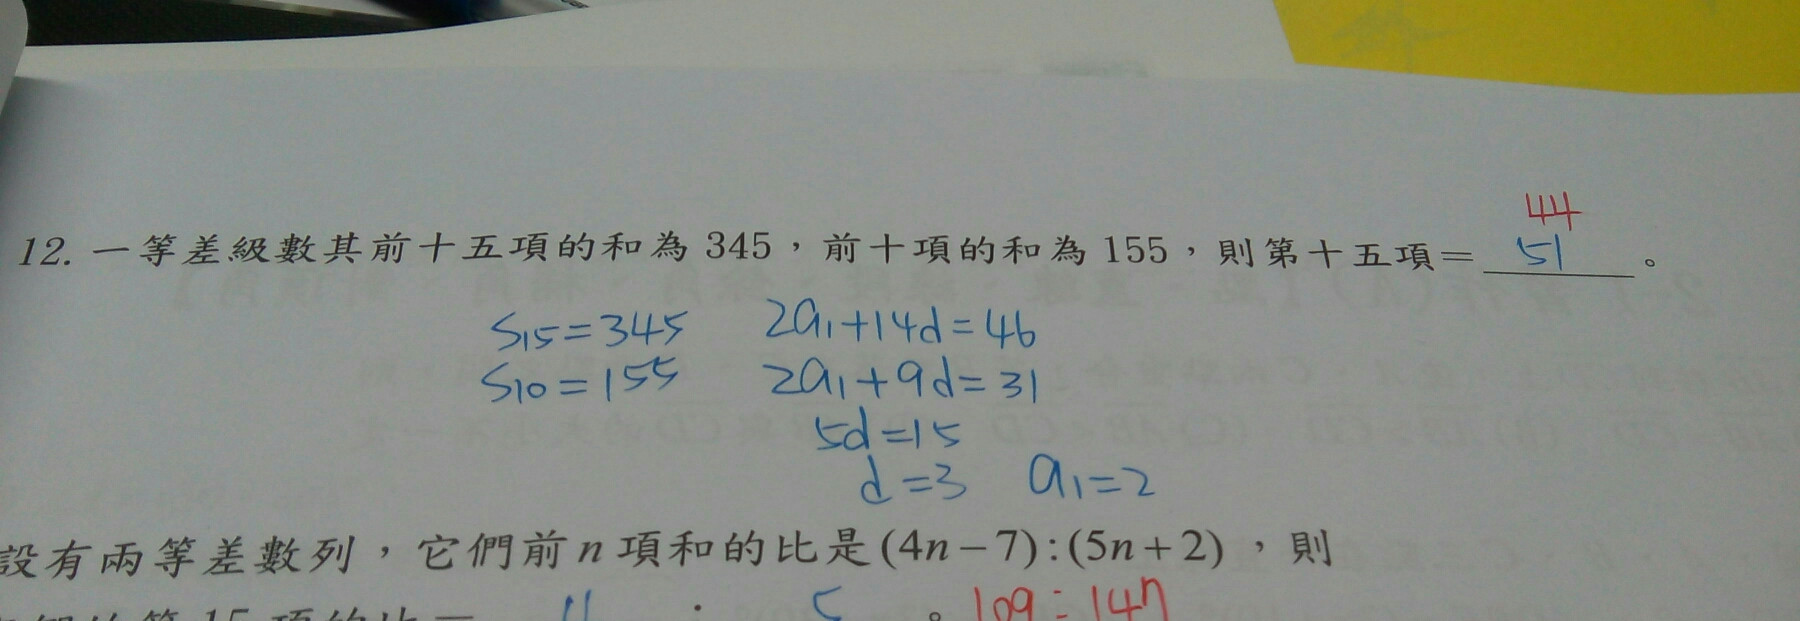 44
12. 一等差級數其前十五項的和為 345，前十項的和為 155，則第十五項＝ 51 。
S15=345 2a1+14d=46
S10=155 2a1+9d=31
5d=15
d=3 a1=2
設有兩等差數列，它們前 n 項和的比是 (4n−7):(5n+2) ，則
第 15 項的比＝ : 5 。 109:147